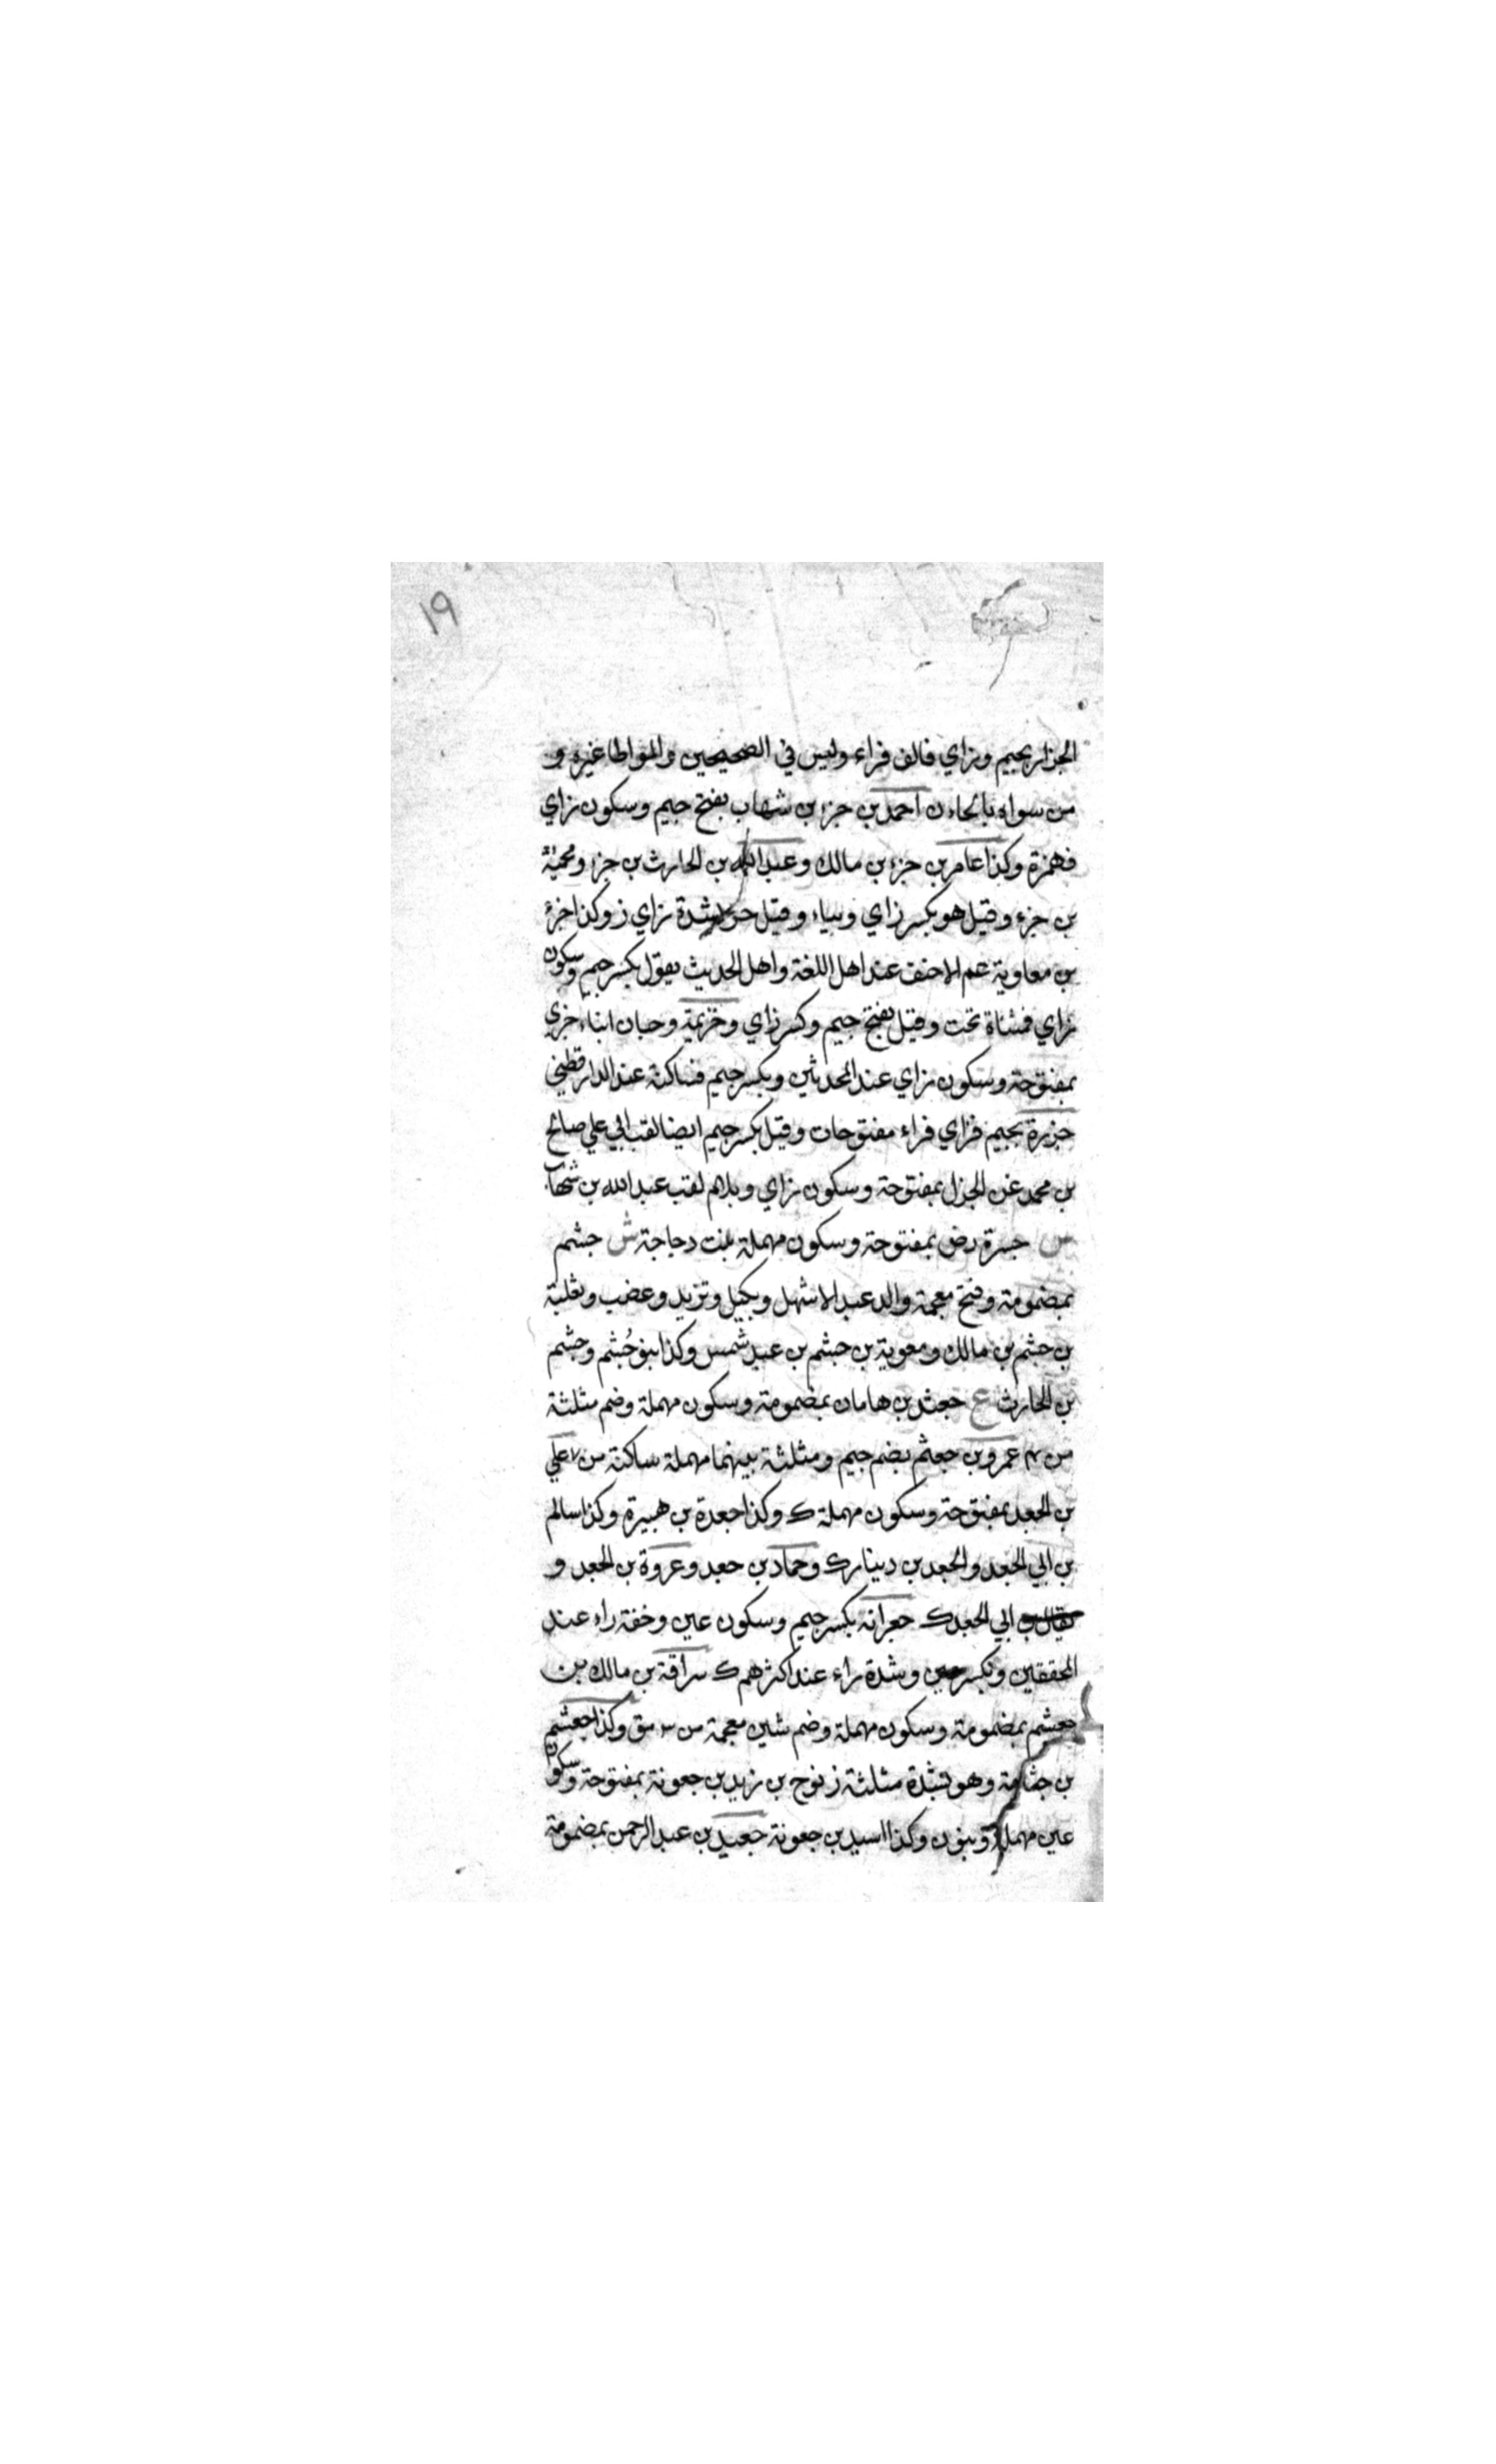 ١٩
الجزار بجيم وزاي فالف فراء وليس في الصحيحين والمواطا غيره و
من سواه بالحاء ن احمد بن جزء بن شهاب بفتح جيم وسكون زاي
فهمزة وكذا عامر بن جزء بن مالك وعبد الله بن الحارث بن جزء ومحمية
بن جزء وقيل هو بكسر زاي وبياء وقيل بشدة زاي ز وكذا جزء
بن معاوية عم الاحنف عند اهل اللغة واهل الحديث يقول بكسر جيم وسكون
زاي فمثناة تحت وقيل بفتح جيم وكسر زاي وخزيمة وحبان ابناء جزي
بمفتوحة وسكون زاي عند المحدثين وبكسر جيم فساكنة عند الدارقطني
جزرة بجيم فزاي فراء مفتوحات وقيل بكسر جيم ايضا لقب ابي علي صالح
بن محمد غن الجزل بمفتوحة وسكون زاي وبلام لقب عبد الله بن شهاب
س جسرة رض بمفتوحة وسكون مهملة بنت دجاجة ش جشم
بمضمومة وفتح معجمة والد عبد الاشهل وبكيل وتزيد وعضب وثعلبة
بن جشم بن مالك ومعوية بن جشم بن عبد شمس وكذا بنو جُشم وجشم
بن الحارث ع جعثل بن هامان بمضمومة وسكون مهملة وضم مثلثة
من عمرو بن جعثم بضم جيم ومثلثة بينهما مهملة ساكنة من علي
بن الجعد بمفتوحة وسكون مهملة ك وكذا جعدة بن هبيرة وكذا سالم
بن ابي الجعد والجعد بن دينار ك وحماد بن جعد وعروة بن الجعد و
يقال بن ابي الجعد ك جعرانه بكسر جيم وسكون عين وخفة راء عند
المحققين وبكسر عين وشدة راء عند اكثرهم ك سراقة بن مالك بن
جعشم بمضمومة وسكون مهملة وضم شين معجمة من وكذا جعشم
بن جثامة وهو بشدة مثلثة ز نوح بن زيد بن جعونة بمفتوحة وسكون
عين مهملة وبنون وكذا اسيد بن جعونة جعيد بن عبد الرحمن بمضمومة